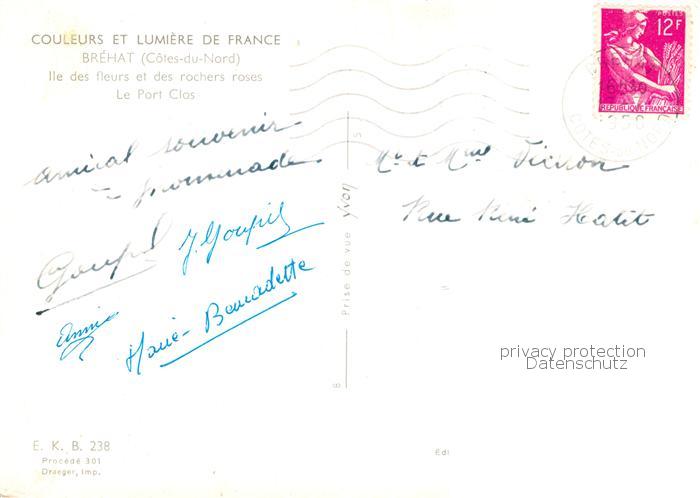 COULEURS ET LUMIÈRE DE FRANCE
BRÉHAT (Côtes-du-Nord)
Ile des fleurs et des rochers roses
Le Port Clos
POSTES
12F
REPUBLIQUE FRANÇAISE
amical souvenir
promenade.
Goupil J. Goupil
Annie
Marie-Bernadette
Mr et Mme
Rue René Hatet
Prise de vue yvon
privacy protection
Datenschutz
E. K. B. 238
Procédé 301
Draeger, Imp.
Edi